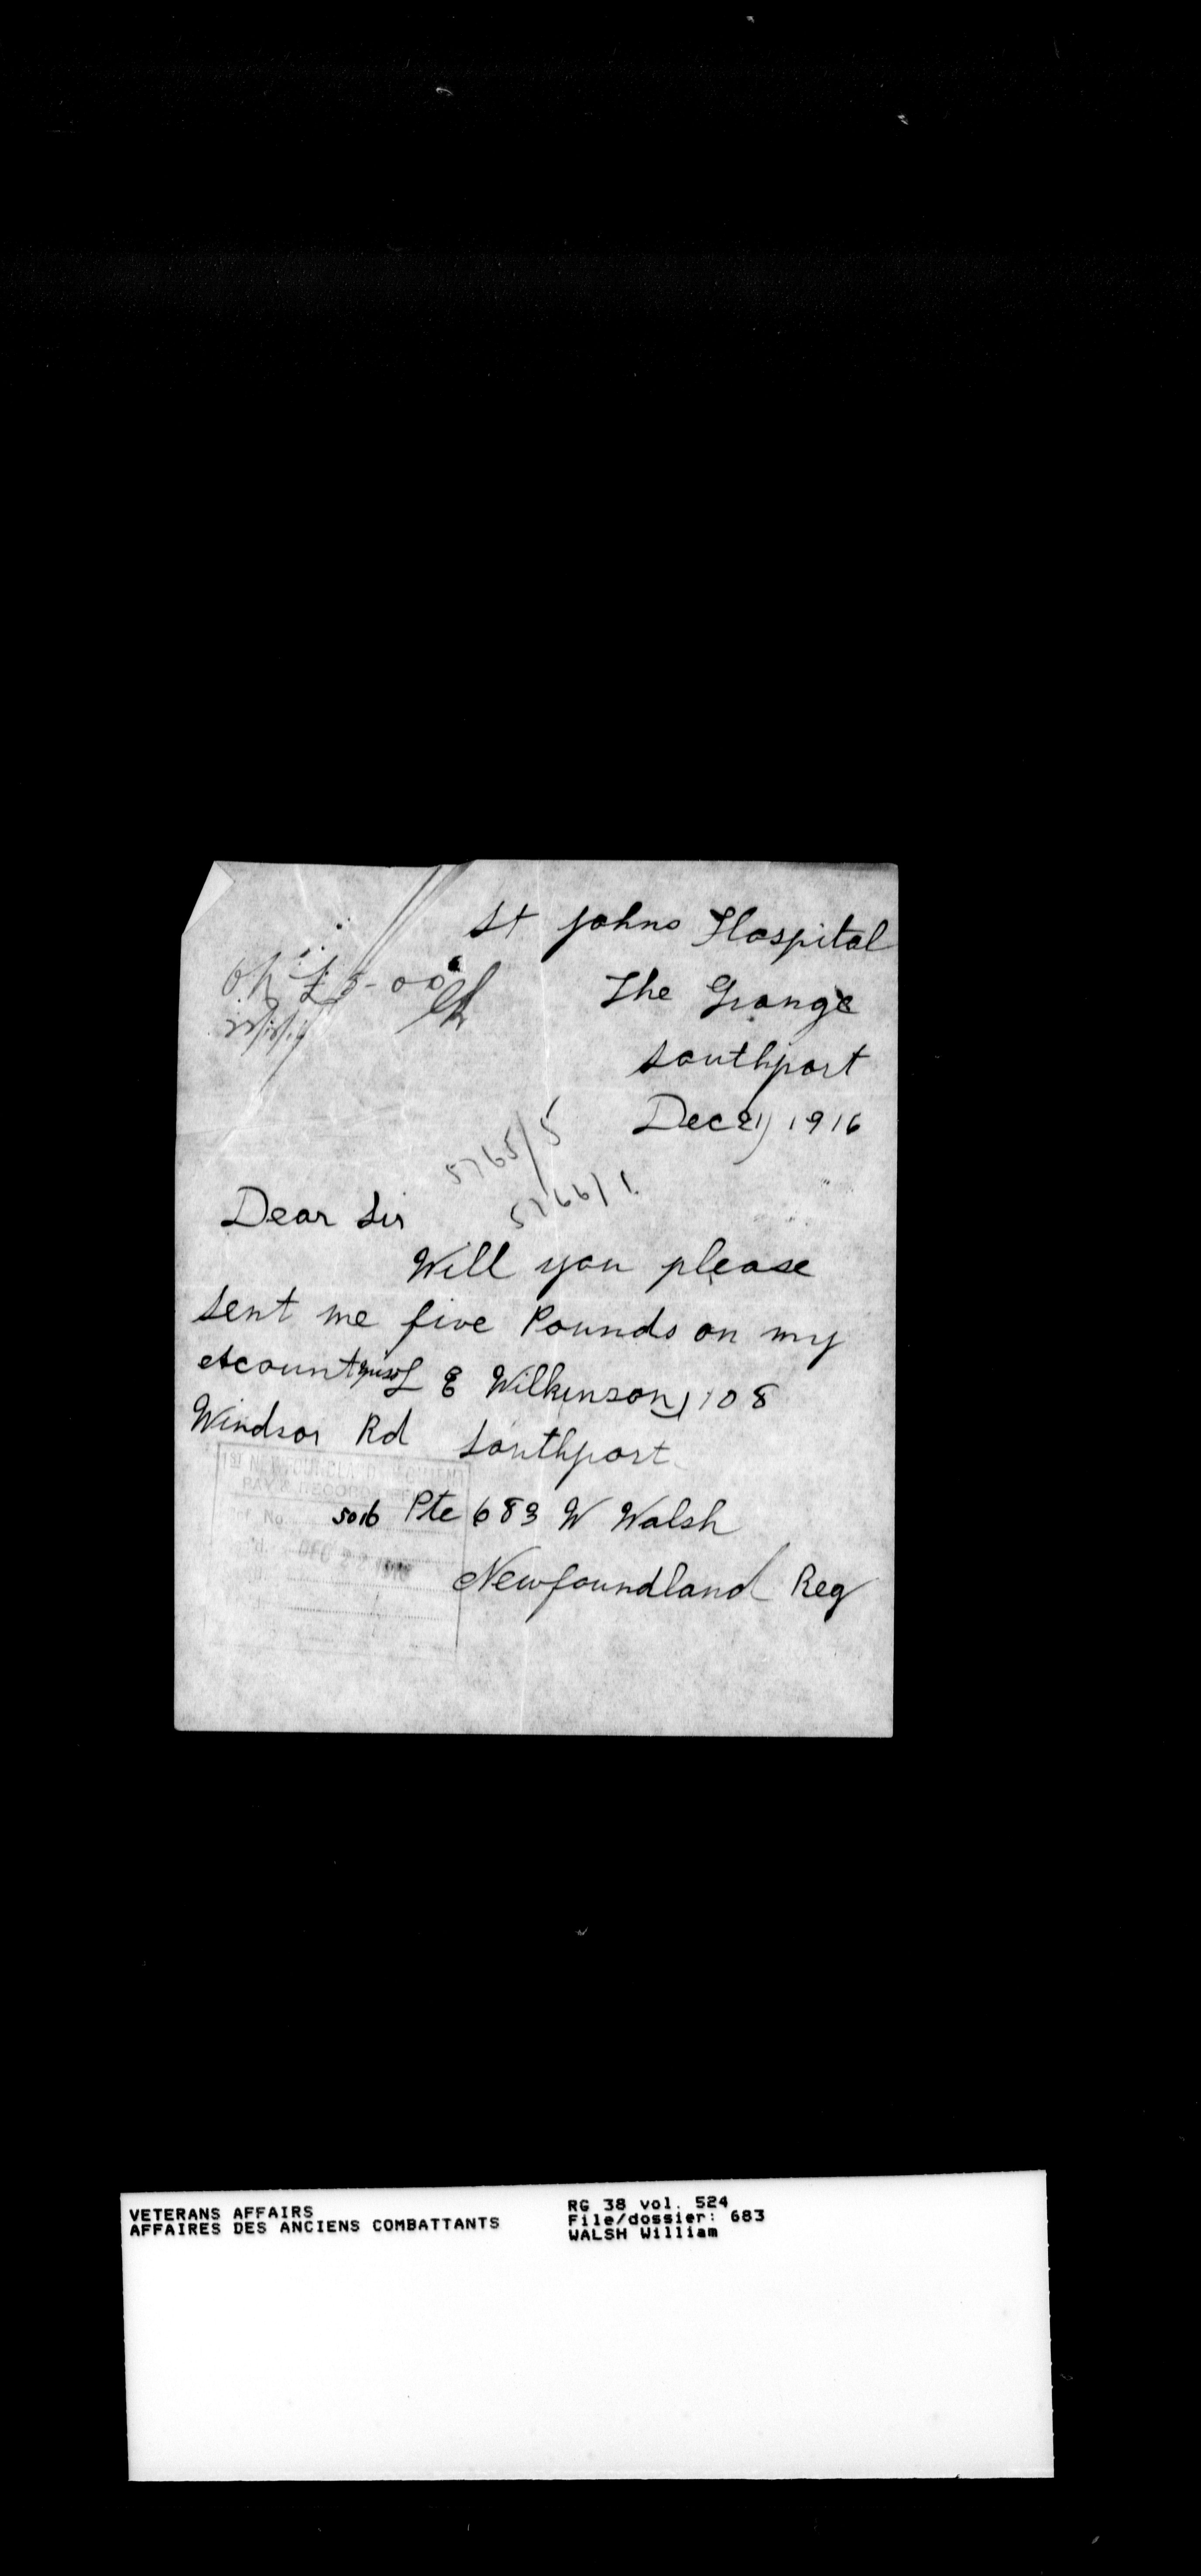 St Johns Hospital
OK £5-0-0
The Grange
22/12/16
Southport
Dec 21) 1916
5765/5
5766/1
Dear Sir
Will you please
sent me five Pounds on my
account L E Wilkinson, 108
Windsor Rd Southport
1ST NEWFOUNDLAND REGIMENT
PAY & RECORD
No.
5016 Pte 683 W Walsh
DEC 22 1916
Newfoundland Reg
VETERANS AFFAIRS
AFFAIRES DES ANCIENS COMBATTANTS
RG 38 vol. 524
File/dossier: 683
WALSH William